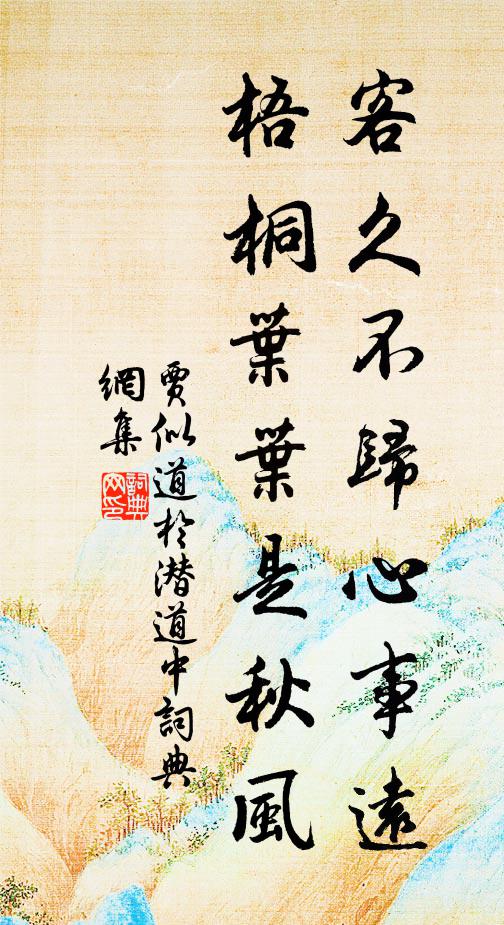 客久不歸心事遠
梧桐葉葉是秋風
賈似道於潛道中詞典
網集
詞典
网印